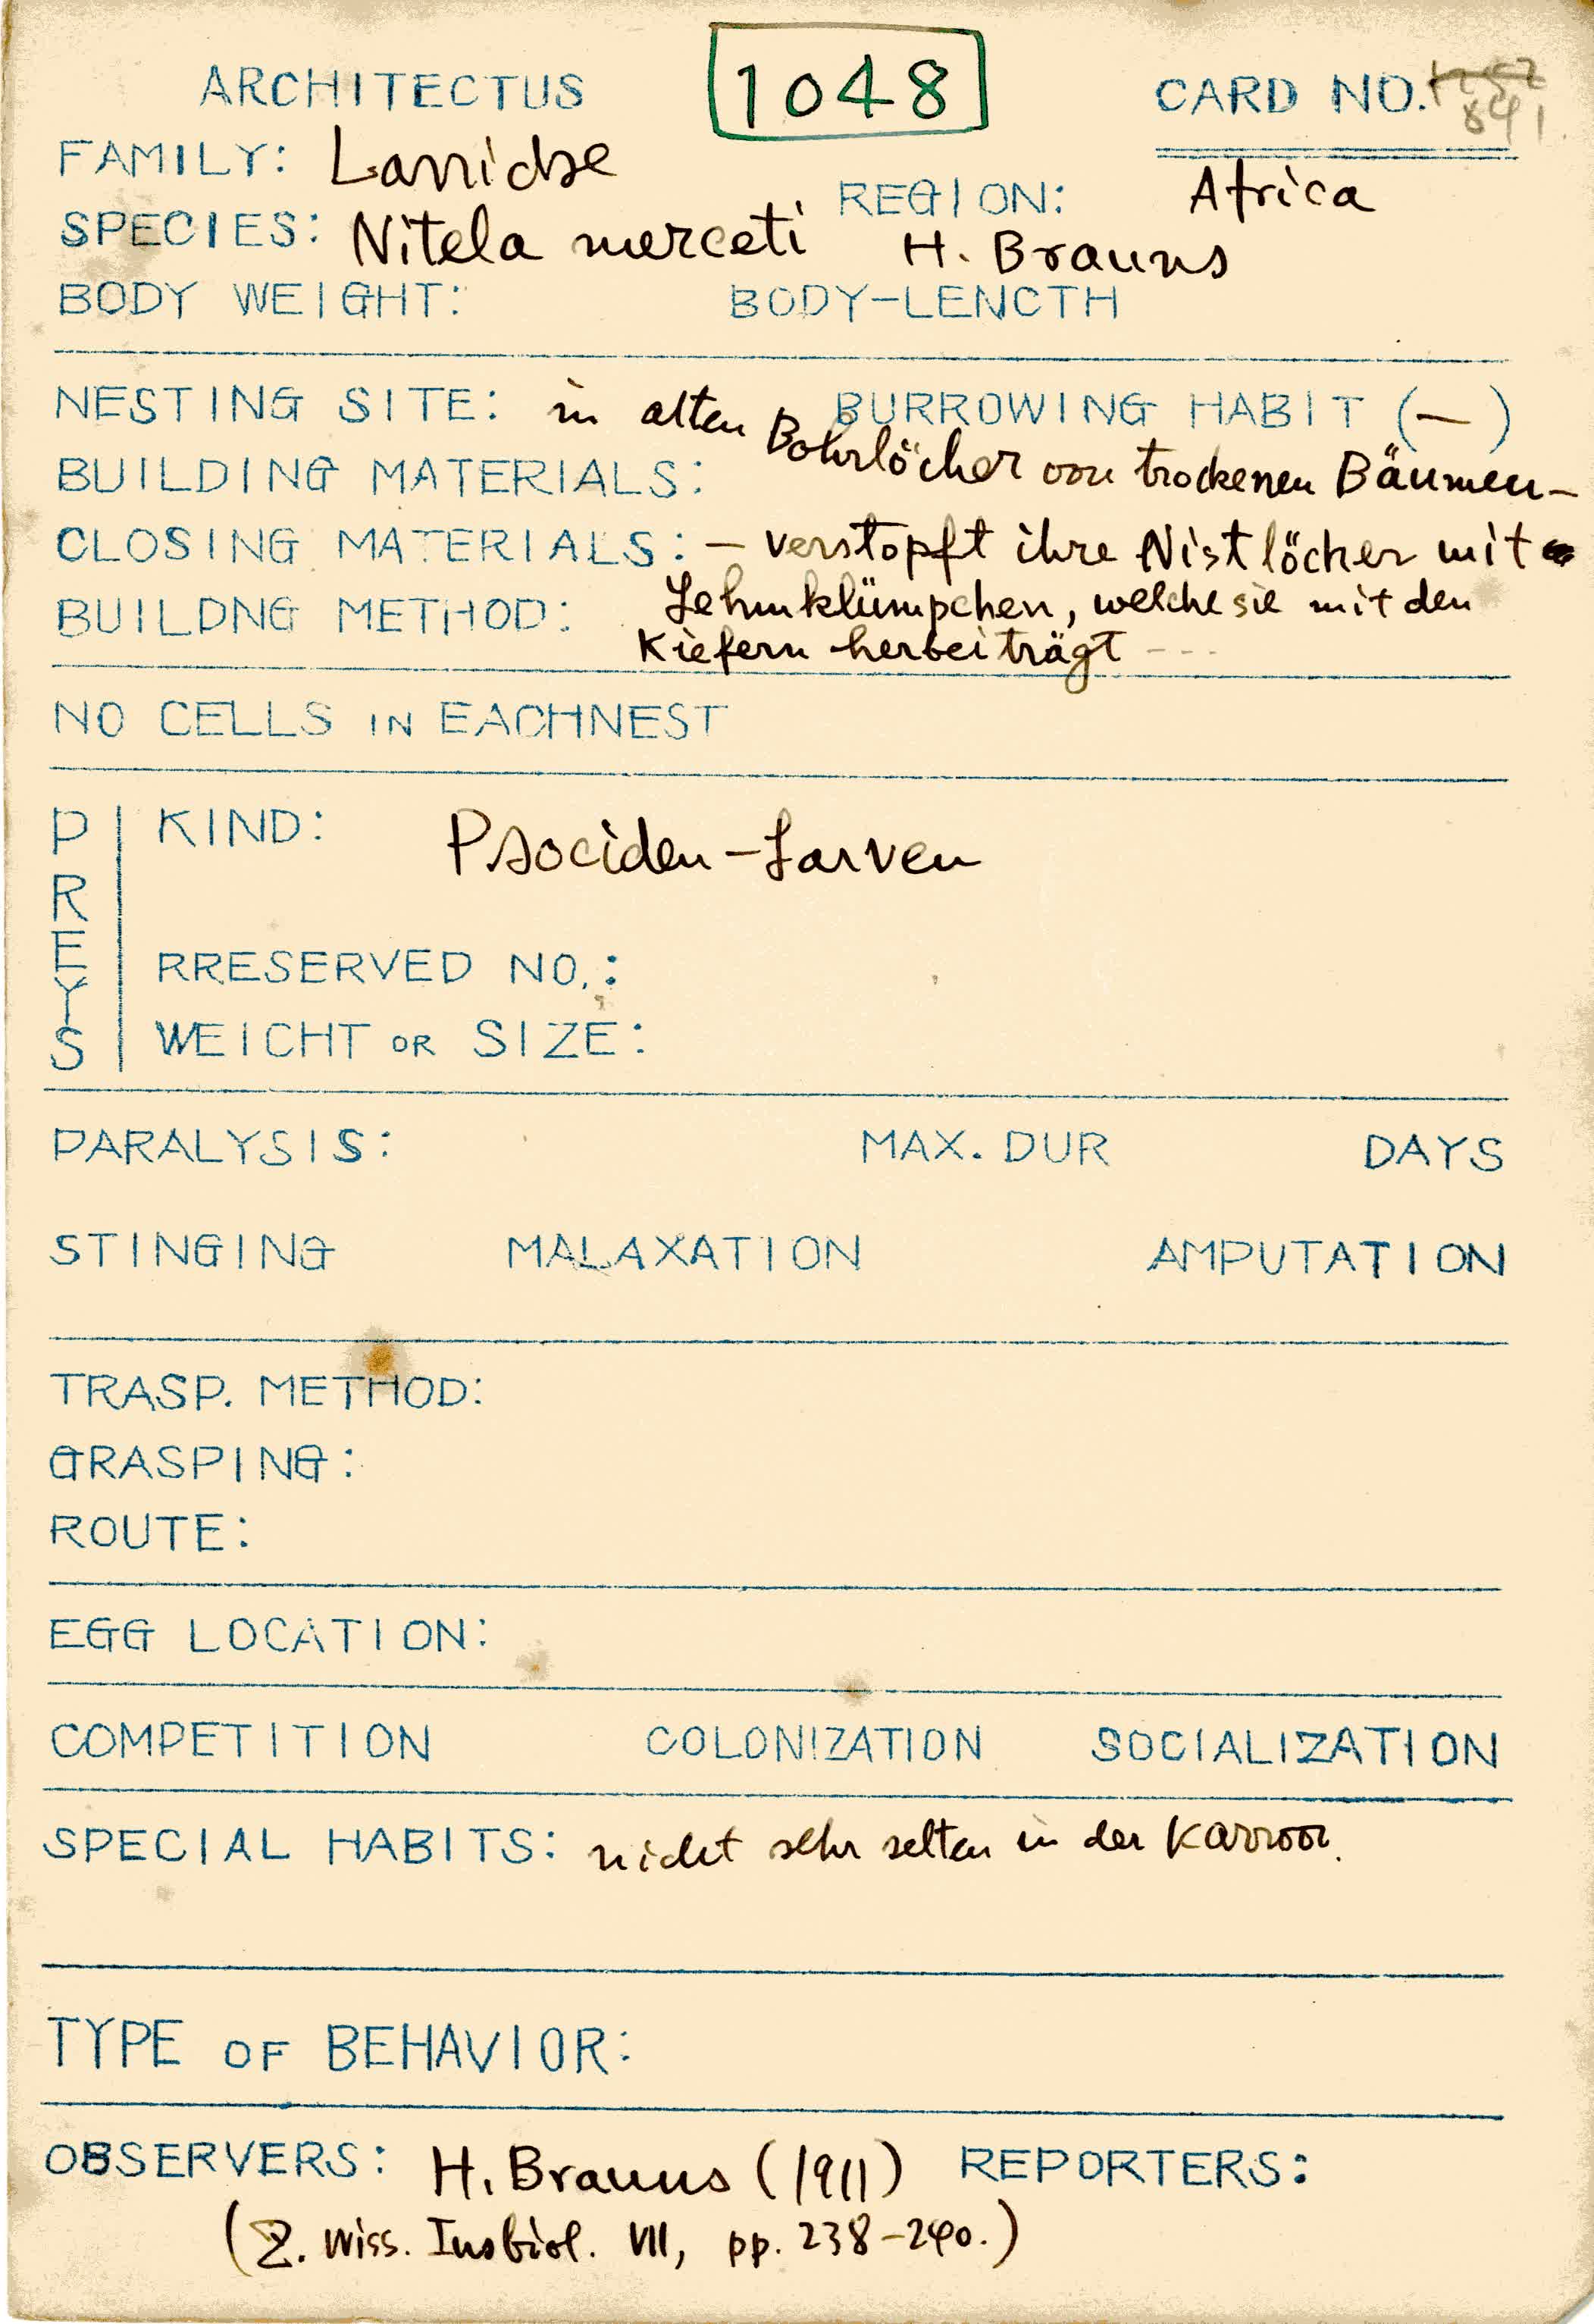 ARCHITECTUS 1048 CARD NO. 1252
841
FAMILY: Larridae
REGION: Africa
SPECIES: Nitela merceti H. Brauns
BODY WEIGHT: BODY-LENCTH
NESTING SITE: in alten BURROWING HABIT (—)
Bohrlöcher von trockenen Bäumen-
BUILDING MATERIALS:
CLOSING MATERIALS: - verstopft ihre Nistlöcher mit
Lehmklümpchen, welche sie mit den
BUILDNG METHOD:
Kiefern herbeiträgt ---
NO CELLS IN EACHNEST
PREYS
KIND: Psociden-Larven
RRESERVED NO.:
WEICHT OR SIZE:
PARALYSIS: MAX. DUR DAYS
STINGING MALAXATION AMPUTATION
TRASP. METHOD:
GRASPING:
ROUTE:
EGG LOCATION:
COMPETITION COLONIZATION SOCIALIZATION
SPECIAL HABITS: nicht sehr selten in der Karroo.
TYPE OF BEHAVIOR:
OBSERVERS: H. Brauns (1911) REPORTERS:
(Z. Wiss. Insbiol. VII, pp. 238-240.)